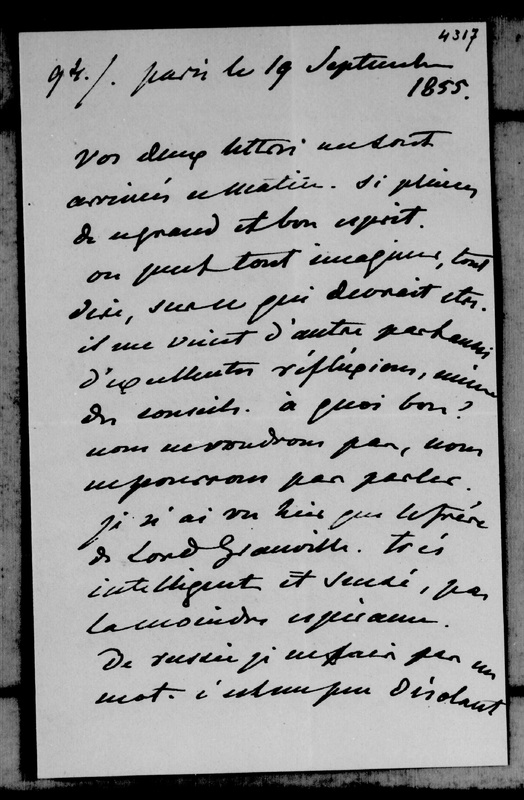 4317
94./. paris le 19 Septembre
1855.
Vos deux lettres me sont
arrivées ce matin. si pleines
de ce grand et bon esprit.
on peut tout imaginer, tout
dire, sur ce qui devrait etre.
il me vient d'autre part aussi
d'excellentes réfléxions, même
des conseils. à quoi bon?
nous ne voudrons pas, nous
ne pourrons pas parler.
je n'ai vu hier que le frère
de Lord Granville. très
intelligent et sensé, pas
la moindre espérance.
De russie je ne sais pas un
mot. c'est un peu désolant